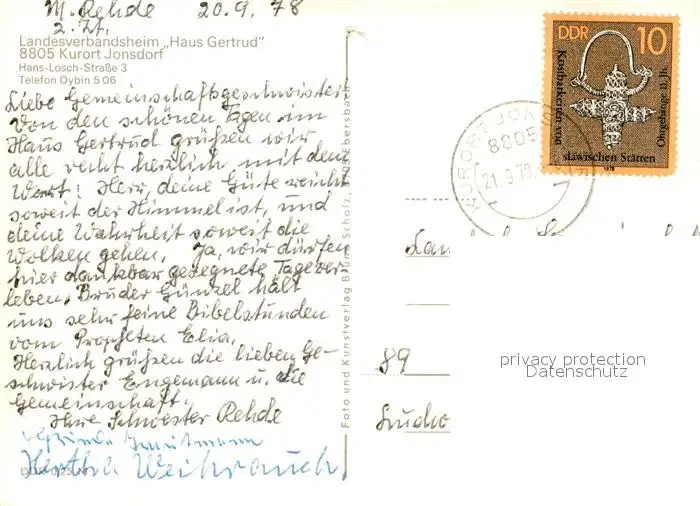 M. Rehde 20.9.78
z. Zt.
Landesverbandsheim „Haus Gertrud"
8805 Kurort Jonsdorf
Hans-Losch-Straße 3
Telefon Oybin 5 06
Liebe Gemeinschaftsgeschwister
Von den schönen Tagen im
Haus Gertrud grüßen wir
alle recht herzlich mit dem
Wort: Herr, deine Güte reicht
soweit der Himmel ist, und
deine Wahrheit soweit die
Wolken gehen. Ja, wir dürfen
hier dankbar gesegnete Tage ver
leben. Bruder Günzel hält
uns sehr feine Bibelstunden
vom Propheten Elia.
Herzlich grüßen die lieben Ge-
schwister Engemann u. die
Gemeinschaft.
Ihre Schwester Rehde
Hertha Weihrauch
Foto und Kunstverlag Scholz, Ebersbach
DDR 10
Kostbarkeiten von
slawischen Stätten
Ohrgehänge 11. Jh.
1978
KURORT JON
8805
21.9.78
89
privacy protection
Datenschutz